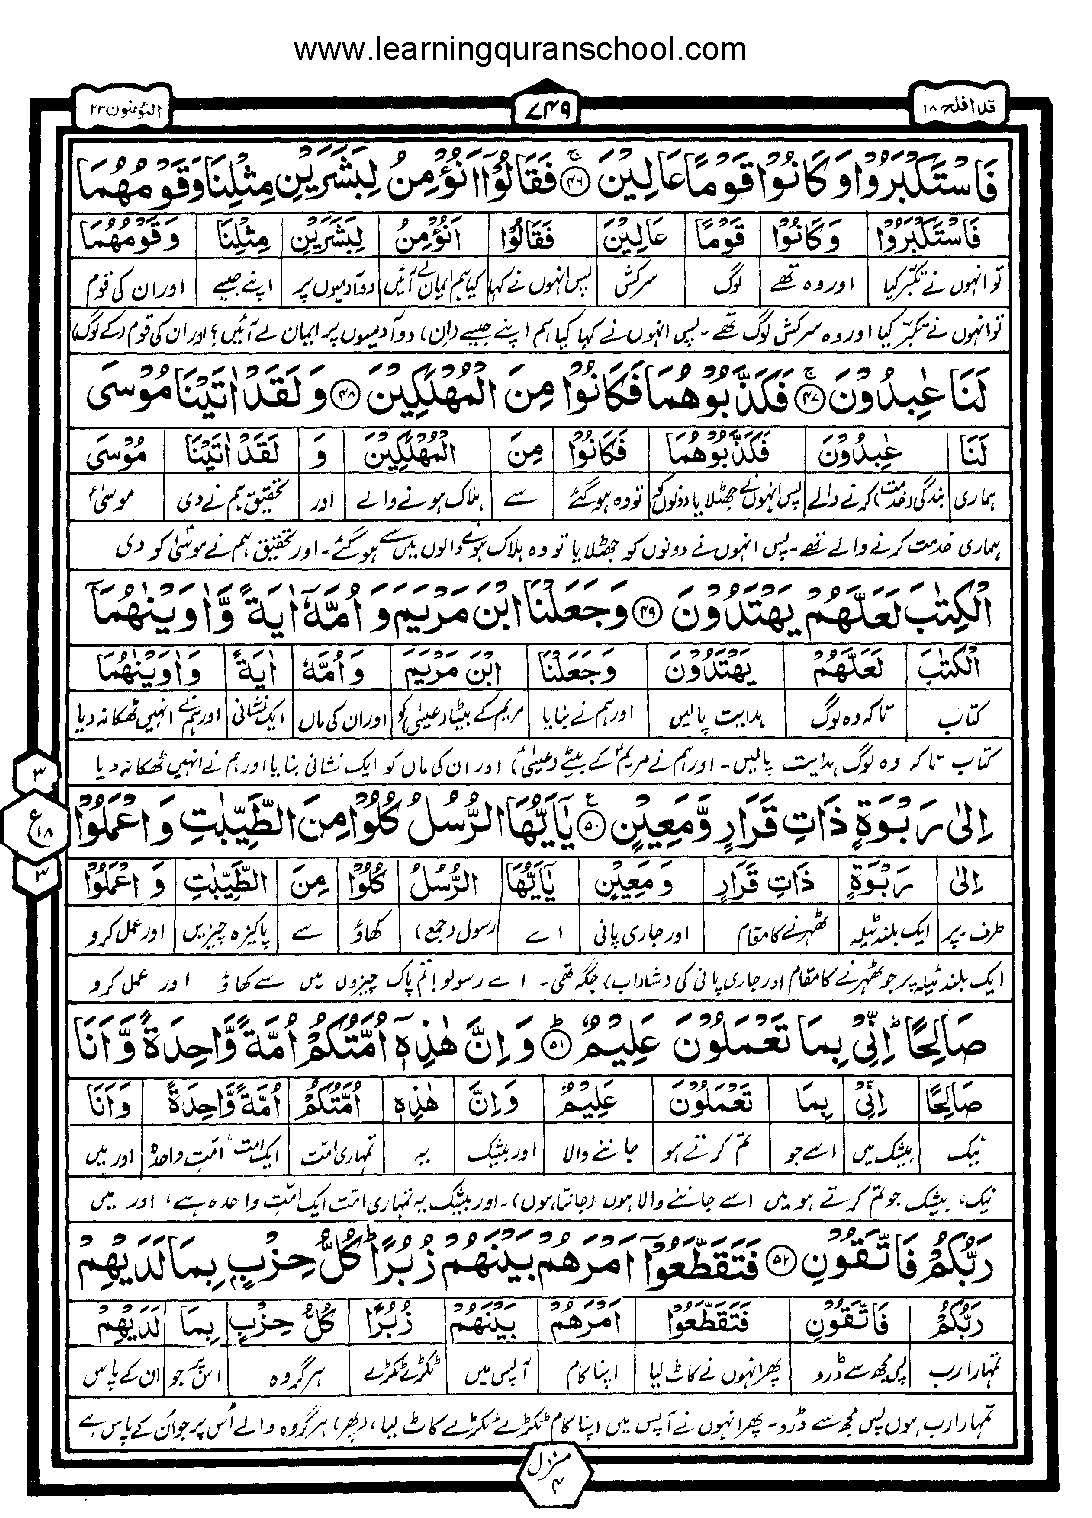 www.learningquranschool.com
قد افلح ١٨
٧٤٩
المؤمنون ٢٣
فَاسْتَكْبَرُوْا وَكَانُوْا قَوْمًا عَالِيْنَ ﴿٤٦﴾ فَقَالُوْٓا اَنُؤْمِنُ لِبَشَرَيْنِ مِثْلِنَا وَقَوْمُهُمَا
فَاسْتَكْبَرُوْا وَكَانُوْا قَوْمًا عَالِيْنَ فَقَالُوْٓا اَنُؤْمِنُ لِبَشَرَيْنِ مِثْلِنَا وَقَوْمُهُمَا
تو انہوں نے تکبر کیا اور وہ تھے لوگ سرکش پس انہوں نے کہا کیا ہم ایمان لے آئیں دو آدمیوں پر اپنے جیسے اور ان کی قوم
تو انہوں نے تکبّر کیا اور وہ سرکش لوگ تھے۔ پس انہوں نے کہا کیا ہم اپنے جیسے (ان) دو آدمیوں پر ایمان لے آئیں؟ اور ان کی قوم (کے لوگ)
لَنَا عٰبِدُوْنَ ﴿٤٧﴾ فَكَذَّبُوْهُمَا فَكَانُوْا مِنَ الْمُهْلَكِيْنَ ﴿٤٨﴾ وَلَقَدْ اٰتَيْنَا مُوْسَى
لَنَا عٰبِدُوْنَ فَكَذَّبُوْهُمَا فَكَانُوْا مِنَ الْمُهْلَكِيْنَ وَ لَقَدْ اٰتَيْنَا مُوْسَى
ہماری بندگی (خدمت) کرنے والے پس انہوں نے جھٹلایا دونوں کو تو وہ ہوگئے سے ہلاک ہونے والے اور تحقیق ہم نے دی موسیٰؑ
ہماری خدمت کرنے والے تھے۔ پس انہوں نے دونوں کو جھٹلایا تو وہ ہلاک ہونے والوں میں سے ہوگئے۔ اور تحقیق ہم نے موسٰیؑ کو دی
الْكِتٰبَ لَعَلَّهُمْ يَهْتَدُوْنَ ﴿٤٩﴾ وَجَعَلْنَا ابْنَ مَرْيَمَ وَاُمَّهٗٓ اٰيَةً وَّاٰوَيْنٰهُمَآ
الْكِتٰبَ لَعَلَّهُمْ يَهْتَدُوْنَ وَجَعَلْنَا ابْنَ مَرْيَمَ وَاُمَّهٗٓ اٰيَةً وَاٰوَيْنٰهُمَا
کتاب تاکہ وہ لوگ ہدایت پالیں اور ہم نے بنایا مریم کے بیٹا (عیسیٰؑ) کو اور ان کی ماں ایک نشانی اور ہم نے انہیں ٹھکانہ دیا
کتاب تاکہ وہ لوگ ہدایت پالیں۔ اور ہم نے مریمؑ کے بیٹے (عیسیٰؑ) اور ان کی ماں کو ایک نشانی بنایا اور ہم نے انہیں ٹھکانہ دیا
٣
ع
١٨
٣
اِلٰى رَبْوَةٍ ذَاتِ قَرَارٍ وَّمَعِيْنٍ ﴿٥٠﴾ يٰٓاَيُّهَا الرُّسُلُ كُلُوْا مِنَ الطَّيِّبٰتِ وَاعْمَلُوْا
اِلٰى رَبْوَةٍ ذَاتِ قَرَارٍ وَمَعِيْنٍ يٰٓاَيُّهَا الرُّسُلُ كُلُوْا مِنَ الطَّيِّبٰتِ وَاعْمَلُوْا
طرف۔ پر ایک بلند ٹیلہ ٹھہرنے کا مقام اور جاری پانی اے رسول (جمع) کھاؤ سے پاکیزہ چیزیں اور عمل کرو
ایک بلند ٹیلہ پر جو ٹھہرنے کا مقام اور جاری پانی کی (شاداب) جگہ تھی۔ اے رسولو! تم پاک چیزوں میں سے کھاؤ اور عمل کرو
صَالِحًا ؕ اِنِّيْ بِمَا تَعْمَلُوْنَ عَلِيْمٌ ﴿٥١﴾ وَاِنَّ هٰذِهٖٓ اُمَّتُكُمْ اُمَّةً وَّاحِدَةً وَّاَنَا
صَالِحًا اِنِّيْ بِمَا تَعْمَلُوْنَ عَلِيْمٌ وَاِنَّ هٰذِهٖٓ اُمَّتُكُمْ اُمَّةً وَّاحِدَةً وَاَنَا
نیک بیشک میں اسے جو تم کرتے ہو جاننے والا اور بیشک یہ تمہاری امت ایک امت، امّت واحدہ اور میں
نیک، بیشک جو تم کرتے ہو میں اسے جاننے والا ہوں (جانتا ہوں)۔ اور بیشک یہ تمہاری امّت ایک امّت واحدہ ہے، اور میں
رَبُّكُمْ فَاتَّقُوْنِ ﴿٥٢﴾ فَتَقَطَّعُوْٓا اَمْرَهُمْ بَيْنَهُمْ زُبُرًا ؕ كُلُّ حِزْبٍۭ بِمَا لَدَيْهِمْ
رَبُّكُمْ فَاتَّقُوْنِ فَتَقَطَّعُوْٓا اَمْرَهُمْ بَيْنَهُمْ زُبُرًا كُلُّ حِزْبٍۭ بِمَا لَدَيْهِمْ
تمہارا رب پس مجھ سے ڈرو پھر انہوں نے کاٹ لیا اپنا کام آپس میں ٹکڑے ٹکڑے ہر گروہ اس پر جو ان کے پاس
تمہارا رب ہوں پس مجھ سے ڈرو۔ پھر انہوں نے آپس میں اپنا کام ٹکڑے ٹکڑے کاٹ لیا، (پھر) ہر گروہ والے اُس پر جو ان کے پاس ہے
منزل
٤